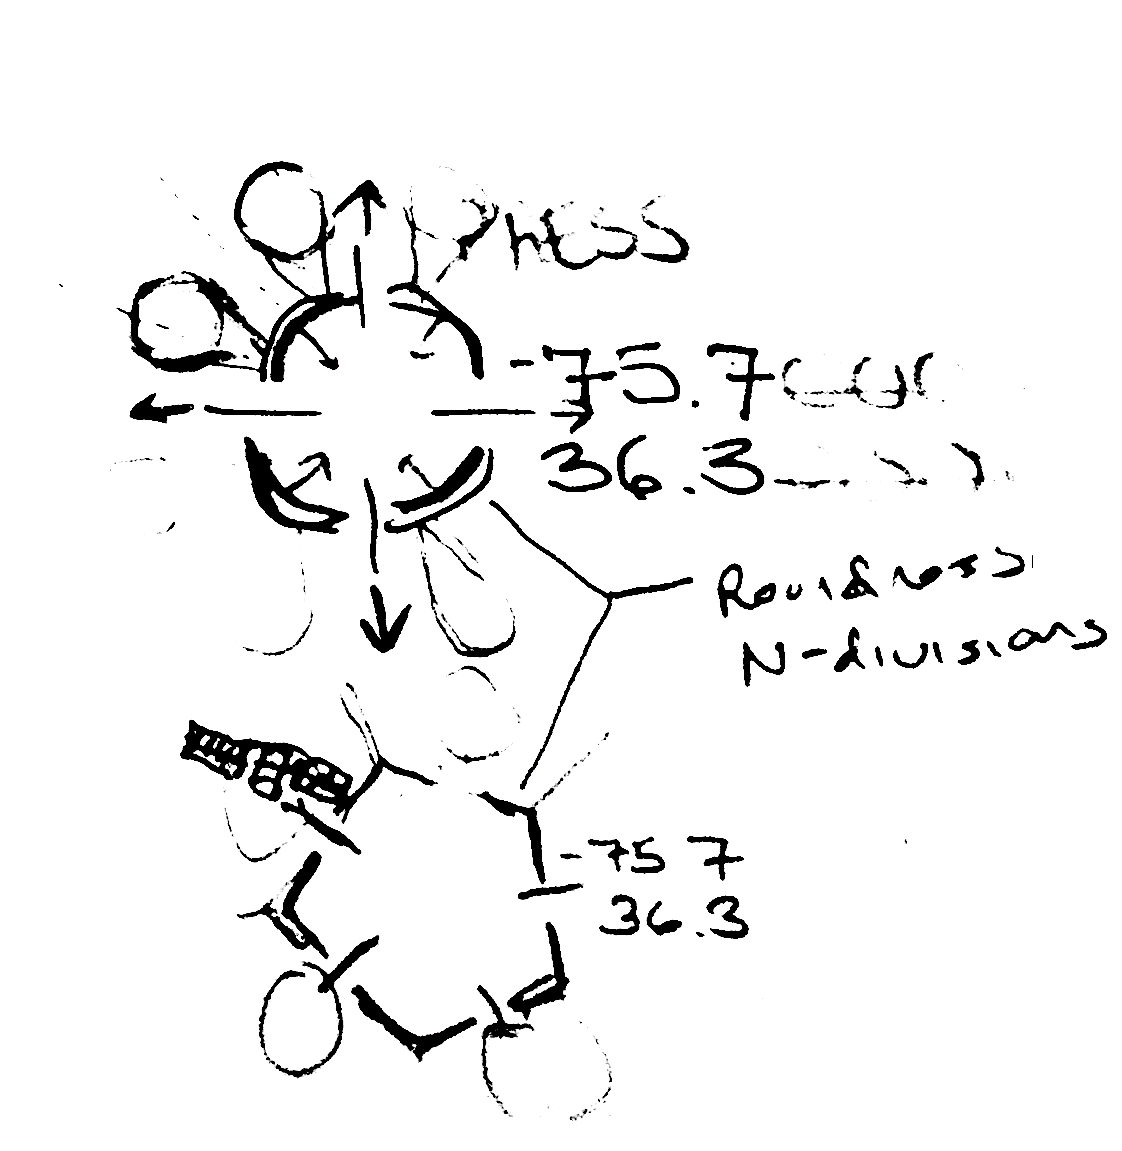 -75.7
36.3
Roundness
N-divisions
-75 7
36.3